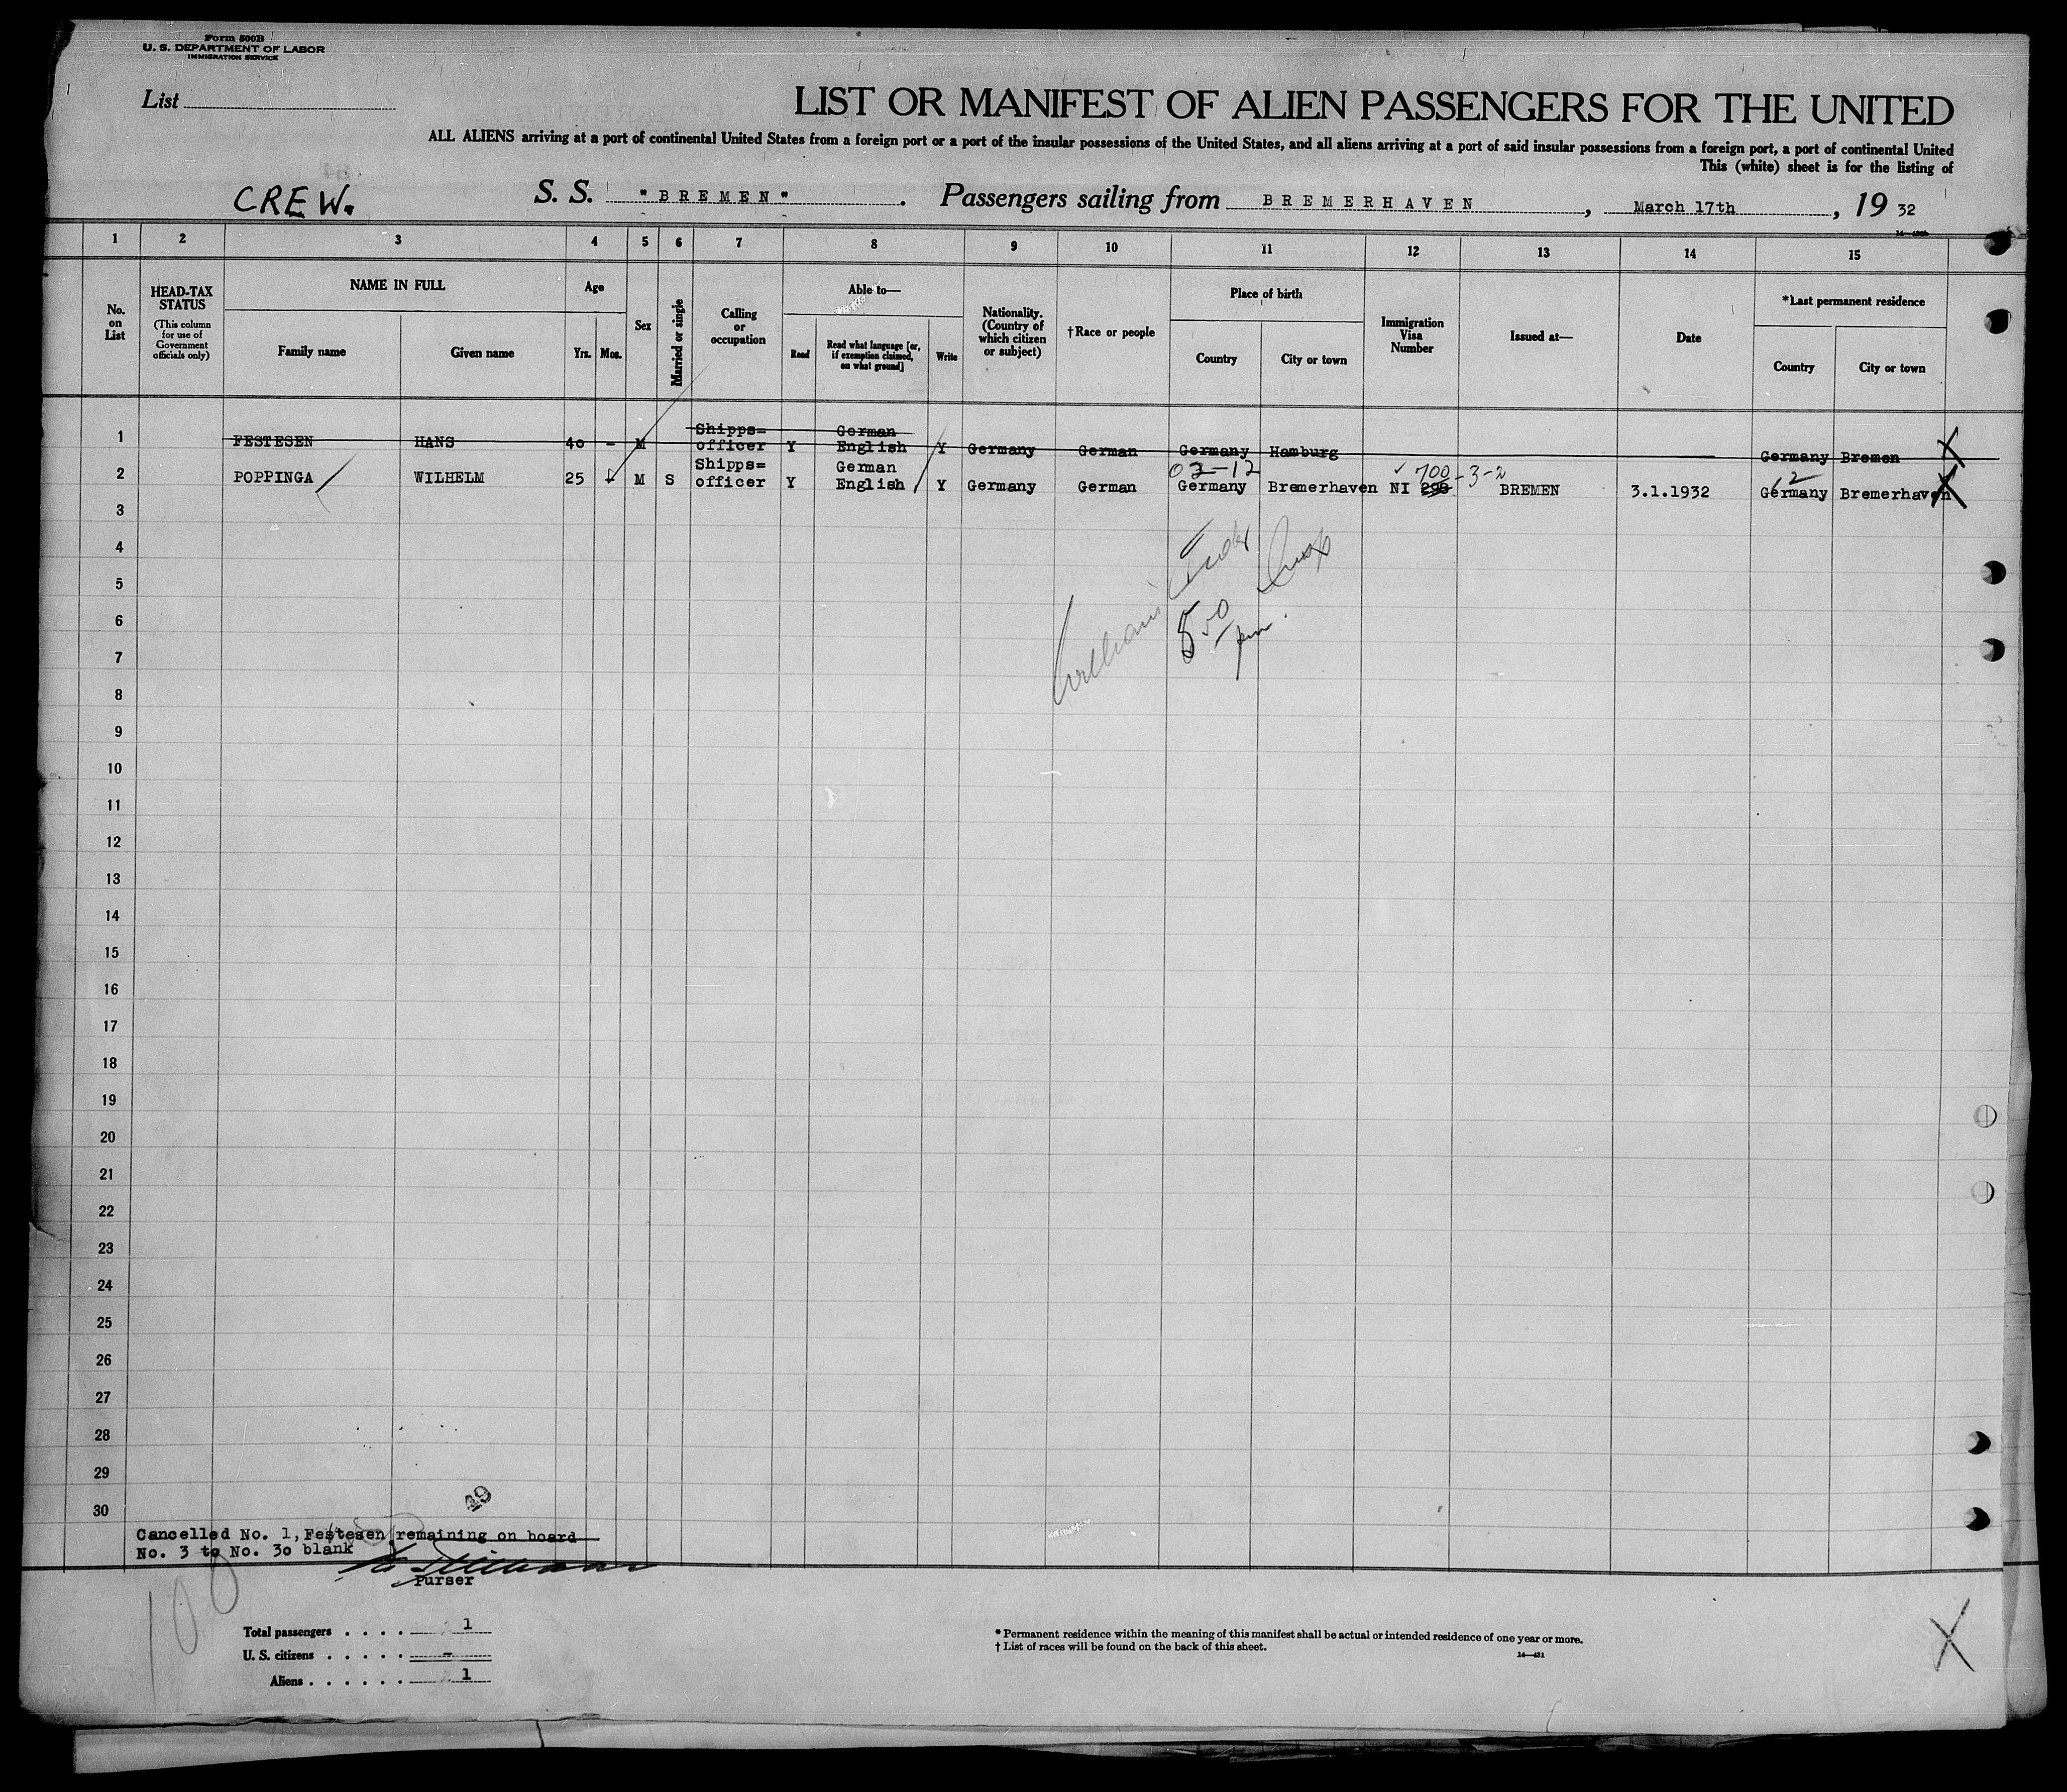 Form 500B
U. S. DEPARTMENT OF LABOR
IMMIGRATION SERVICE
List
LIST OR MANIFEST OF ALIEN PASSENGERS FOR THE UNITED
ALL ALIENS arriving at a port of continental United States from a foreign port or a port of the insular possessions of the United States, and all aliens arriving at a port of said insular possessions from a foreign port, a port of continental United
This (white) sheet is for the listing of
CREW. S. S. "BREMEN". Passengers sailing from BREMERHAVEN, March 17th, 19 32
1 2 3 4 5 6 7 8 9 10 11 12 13 14 15
No. on List
HEAD-TAX STATUS
(This column for use of Government officials only)
NAME IN FULL
Family name
Given name
Age
Yrs. Mos.
Sex
Married or single
Calling or occupation
Able to—
Read
Read what language [or, if exemption claimed, on what ground]
Write
Nationality. (Country of which citizen or subject)
†Race or people
Place of birth
Country
City or town
Immigration Visa Number
Issued at—
Date
*Last permanent residence
Country
City or town
1 FESTESEN HANS 40 - M Shipps= officer Y German English Y Germany German Germany Hamburg Germany Bremen X
2 POPPINGA WILHELM 25 M S Shipps= officer Y German English Y Germany German Germany Bremerhaven NI 700-3-2 BREMEN 3.1.1932 Germany Bremerhaven X
3
4
5
6
7
8
9
10
11
12
13
14
15
16
17
18
19
20
21
22
23
24
25
26
27
28
29
30
49
Cancelled No. 1, Festesen remaining on board
No. 3 to No. 30 blank
Purser
100
Total passengers . . . . 1
U. S. citizens . . . . . -
Aliens . . . . . . 1
* Permanent residence within the meaning of this manifest shall be actual or intended residence of one year or more.
† List of races will be found on the back of this sheet.
X